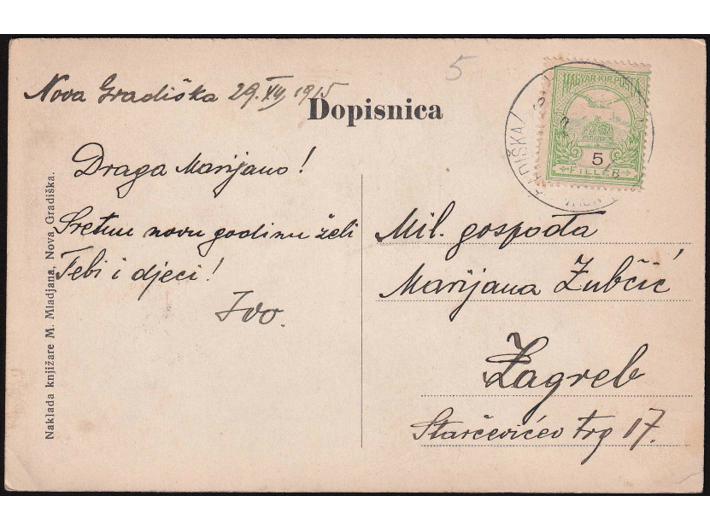 Nova Gradiška 29. XII 1915
Dopisnica
5
MAGYAR KIR. POSTA
5
FILLÉR
Draga Marijano!
Sretnu novu godinu želi
Tebi i djeci!
Ivo.
Mil. gospođa
Marijana Zubčić
Zagreb
Starčevićev trg 17.
Naklada knjižare M. Mladjana, Nova Gradiška.